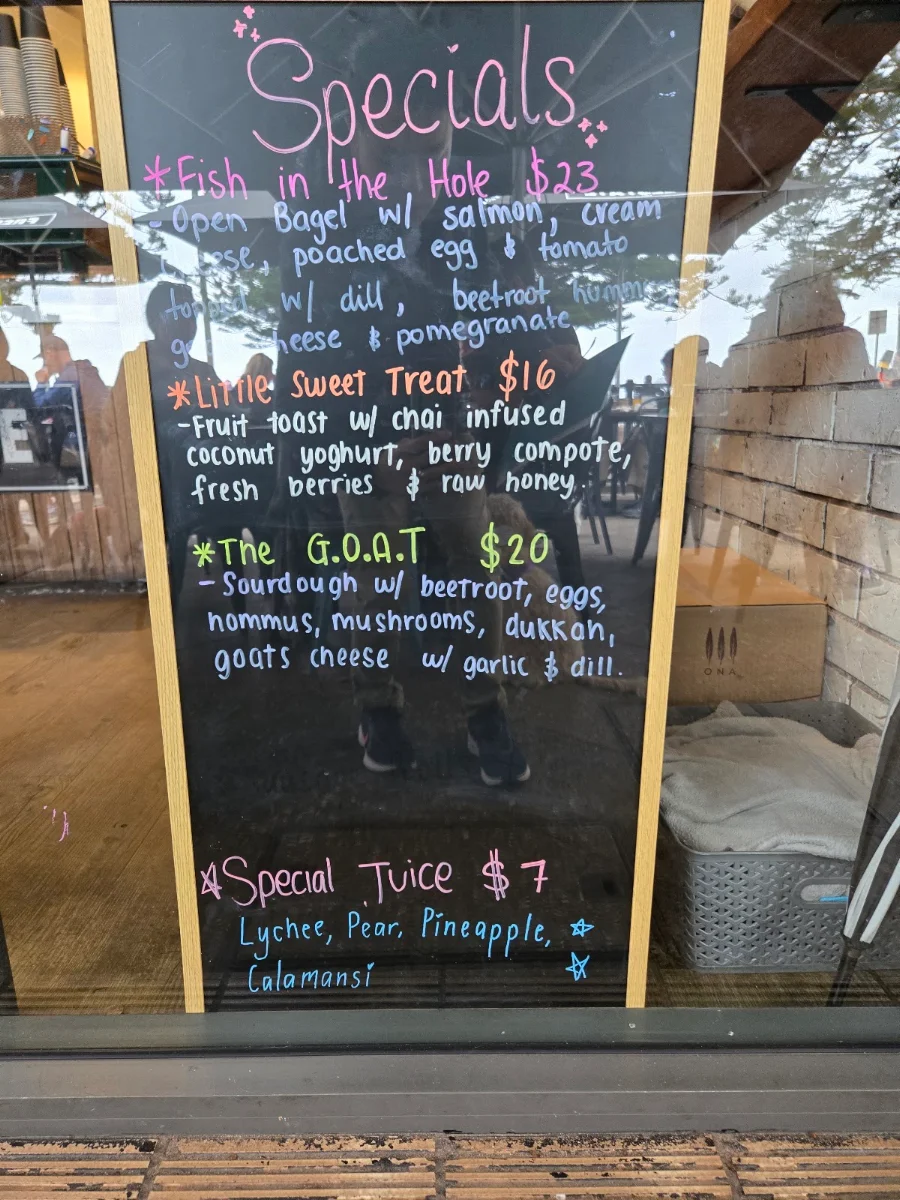 Specials
*Fish in the Hole $23
-Open Bagel w/ salmon, cream
poached egg & tomato
w/ dill, beetroot
& pomegranate
*Little Sweet Treat $16
-Fruit toast w/ chai infused
coconut yoghurt, berry compote,
fresh berries & raw honey.
*The G.O.A.T $20
-Sourdough w/ beetroot, eggs,
hommus, mushrooms, dukkah,
goats cheese w/ garlic & dill.
Special Juice $7
Lychee, Pear, Pineapple,
Calamansi
ONA